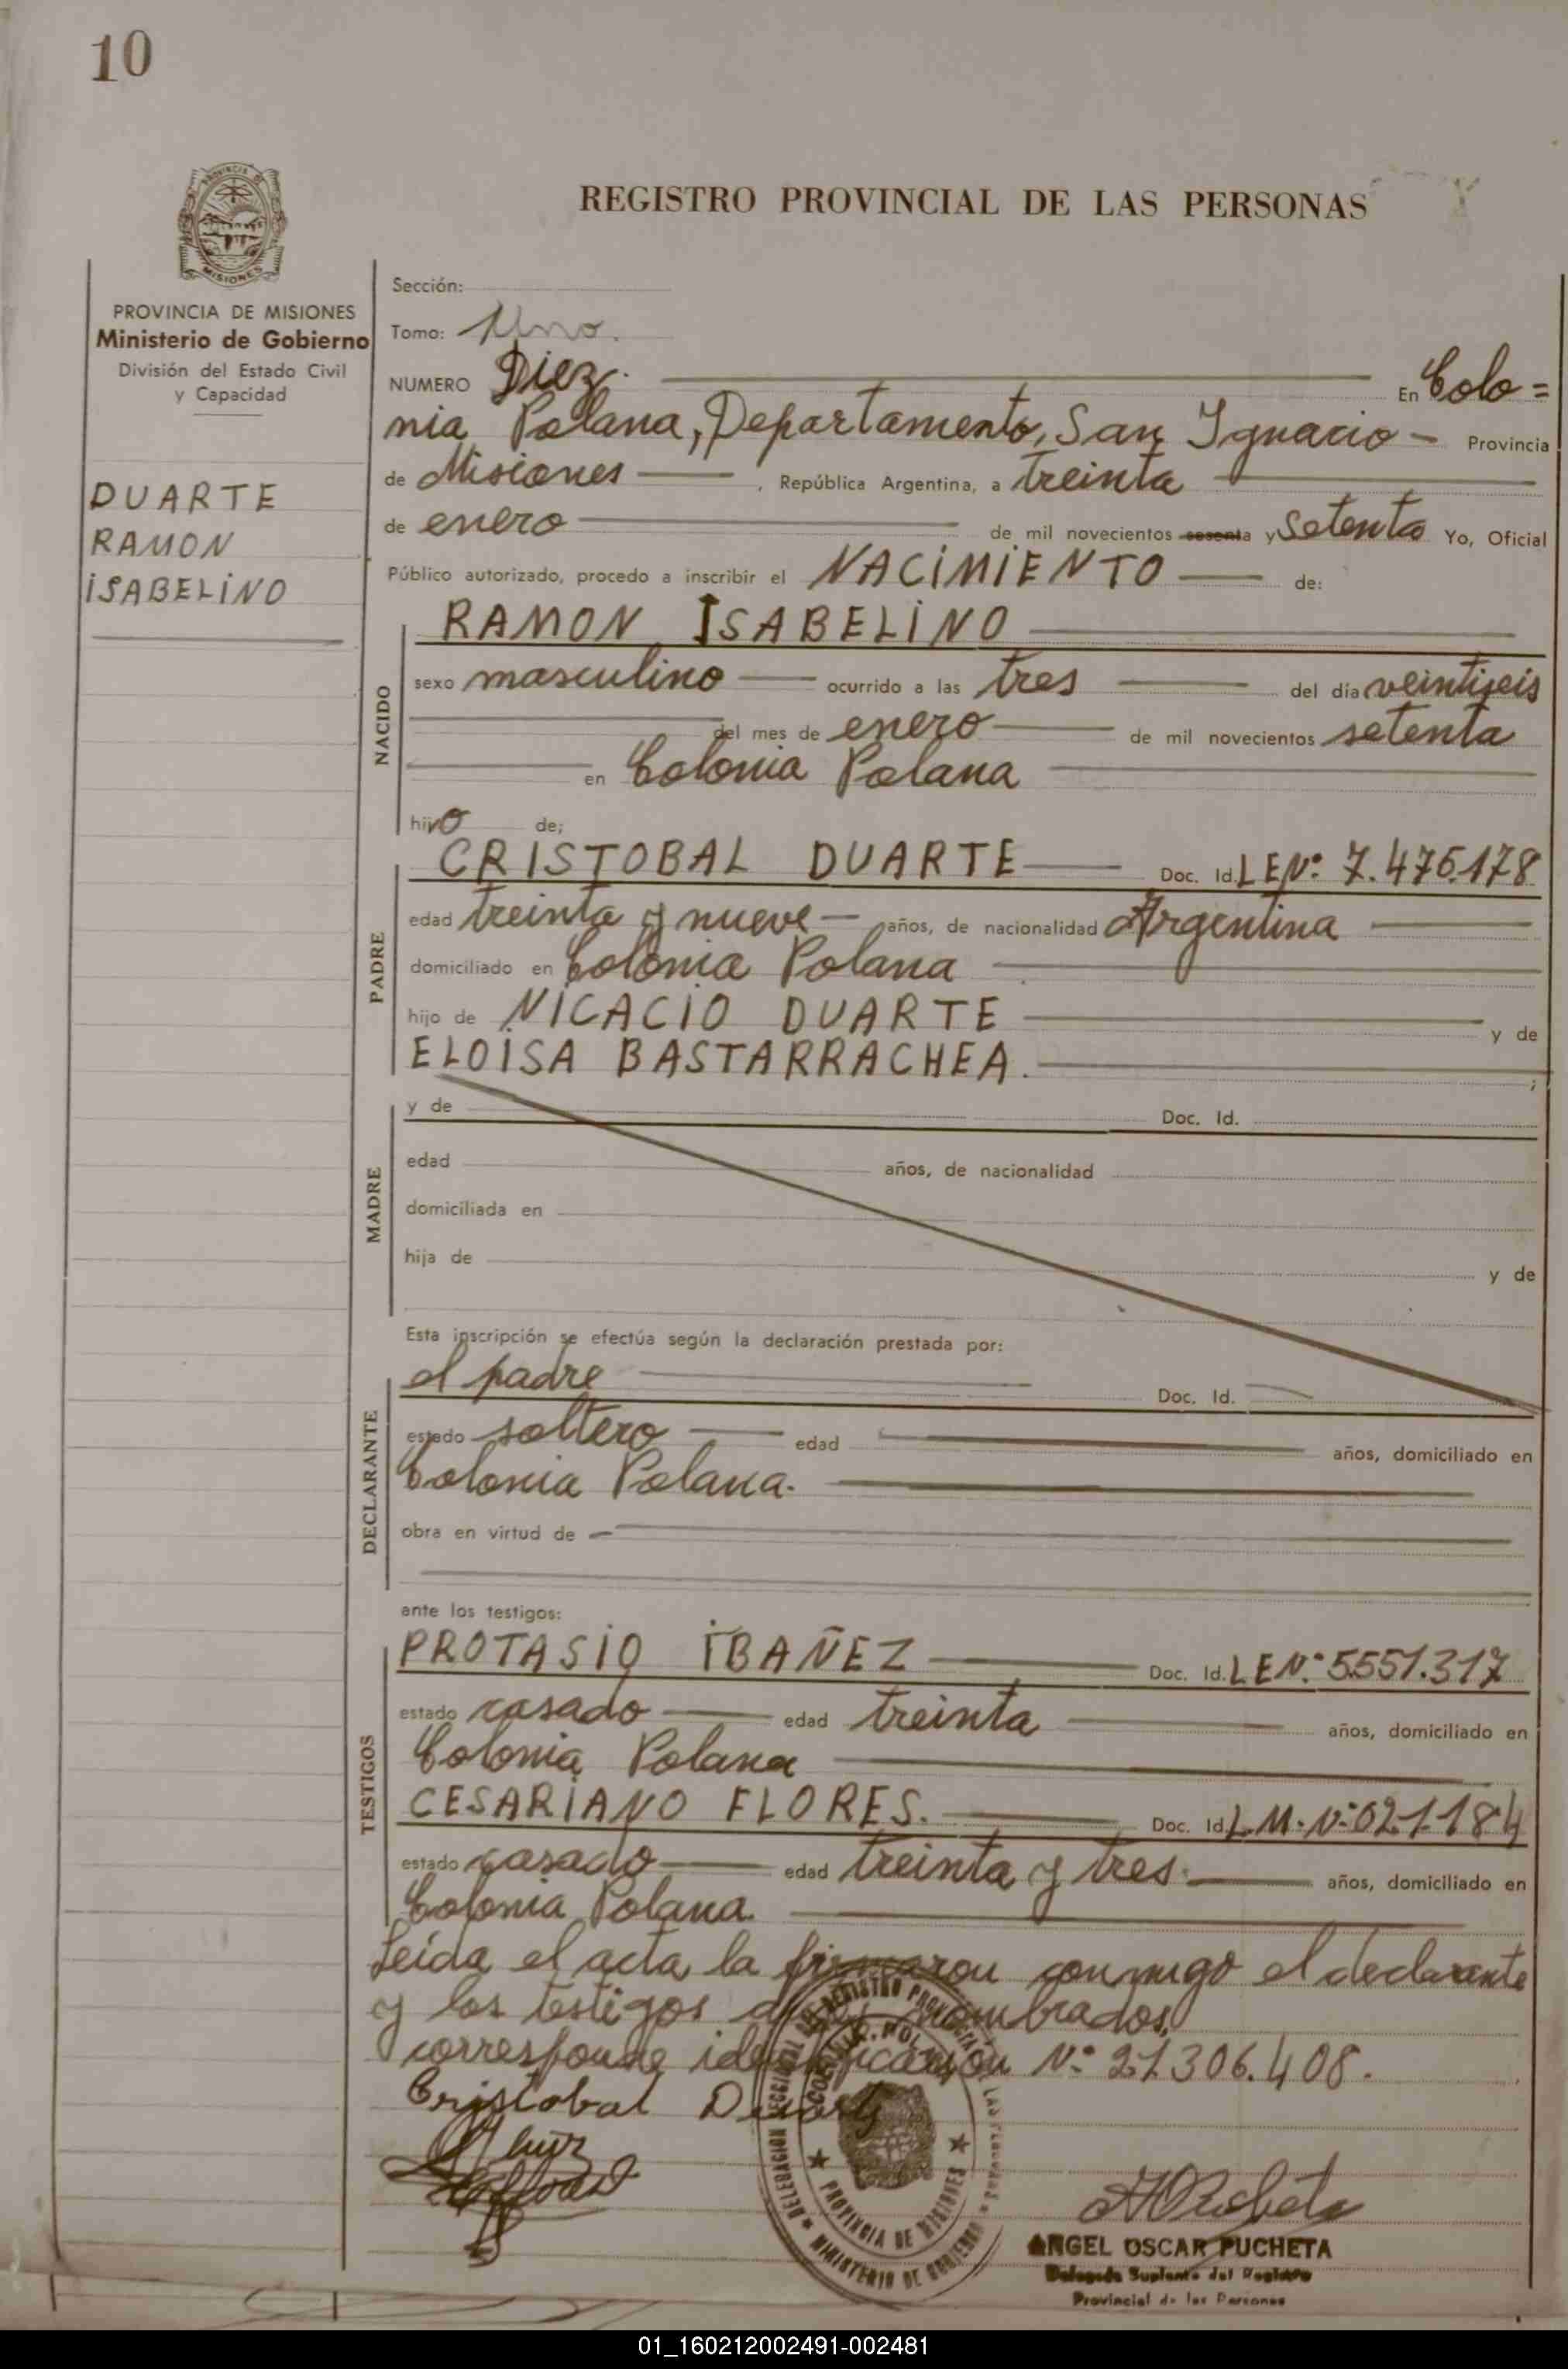 10
REGISTRO PROVINCIAL DE LAS PERSONAS
MISIONES
PROVINCIA DE MISIONES
Ministerio de Gobierno
División del Estado Civil
y Capacidad
DUARTE
RAMON
ISABELINO
Sección:
Tomo: Uno.
NUMERO Diez. En Colo=
nia Polana, Departamento, San Ignacio - Provincia
de Misiones , República Argentina, a treinta
de enero de mil novecientos sesenta y Setenta Yo, Oficial
Público autorizado, procedo a inscribir el NACIMIENTO de:
NACIDO
RAMON ISABELINO
sexo masculino ocurrido a las tres del día veintiseis
del mes de enero de mil novecientos setenta
en Colonia Polana
hijo de;
PADRE
CRISTOBAL DUARTE Doc. Id. L E Nº: 7.476.178
edad treinta y nueve - años, de nacionalidad Argentina
domiciliado en Colonia Polana
hijo de NICACIO DUARTE y de
ELOISA BASTARRACHEA. ;
MADRE
y de Doc. Id.
edad años, de nacionalidad
domiciliada en
hija de y de
Esta inscripción se efectúa según la declaración prestada por:
DECLARANTE
el padre Doc. Id.
estado soltero edad años, domiciliado en
Colonia Polana.
obra en virtud de
ante los testigos:
TESTIGOS
PROTASIO IBAÑEZ Doc. Id. L E Nº: 5551.317
estado casado edad treinta años, domiciliado en
Colonia Polana
CESARIANO FLORES. Doc. Id. L.M. Nº: 021.184
estado casado edad treinta y tres años, domiciliado en
Colonia Polana.
Leída el acta la firmaron conmigo el declarante
y los testigos nombrados.
corresponde identificación Nº 21306.408.
Cristobal Duarte
PROVINCIA DE MISIONES
MINISTERIO DE GOBIERNO
ANGEL OSCAR PUCHETA
Delegado Suplente del Registro
Provincial de las Personas
01_160212002491-002481